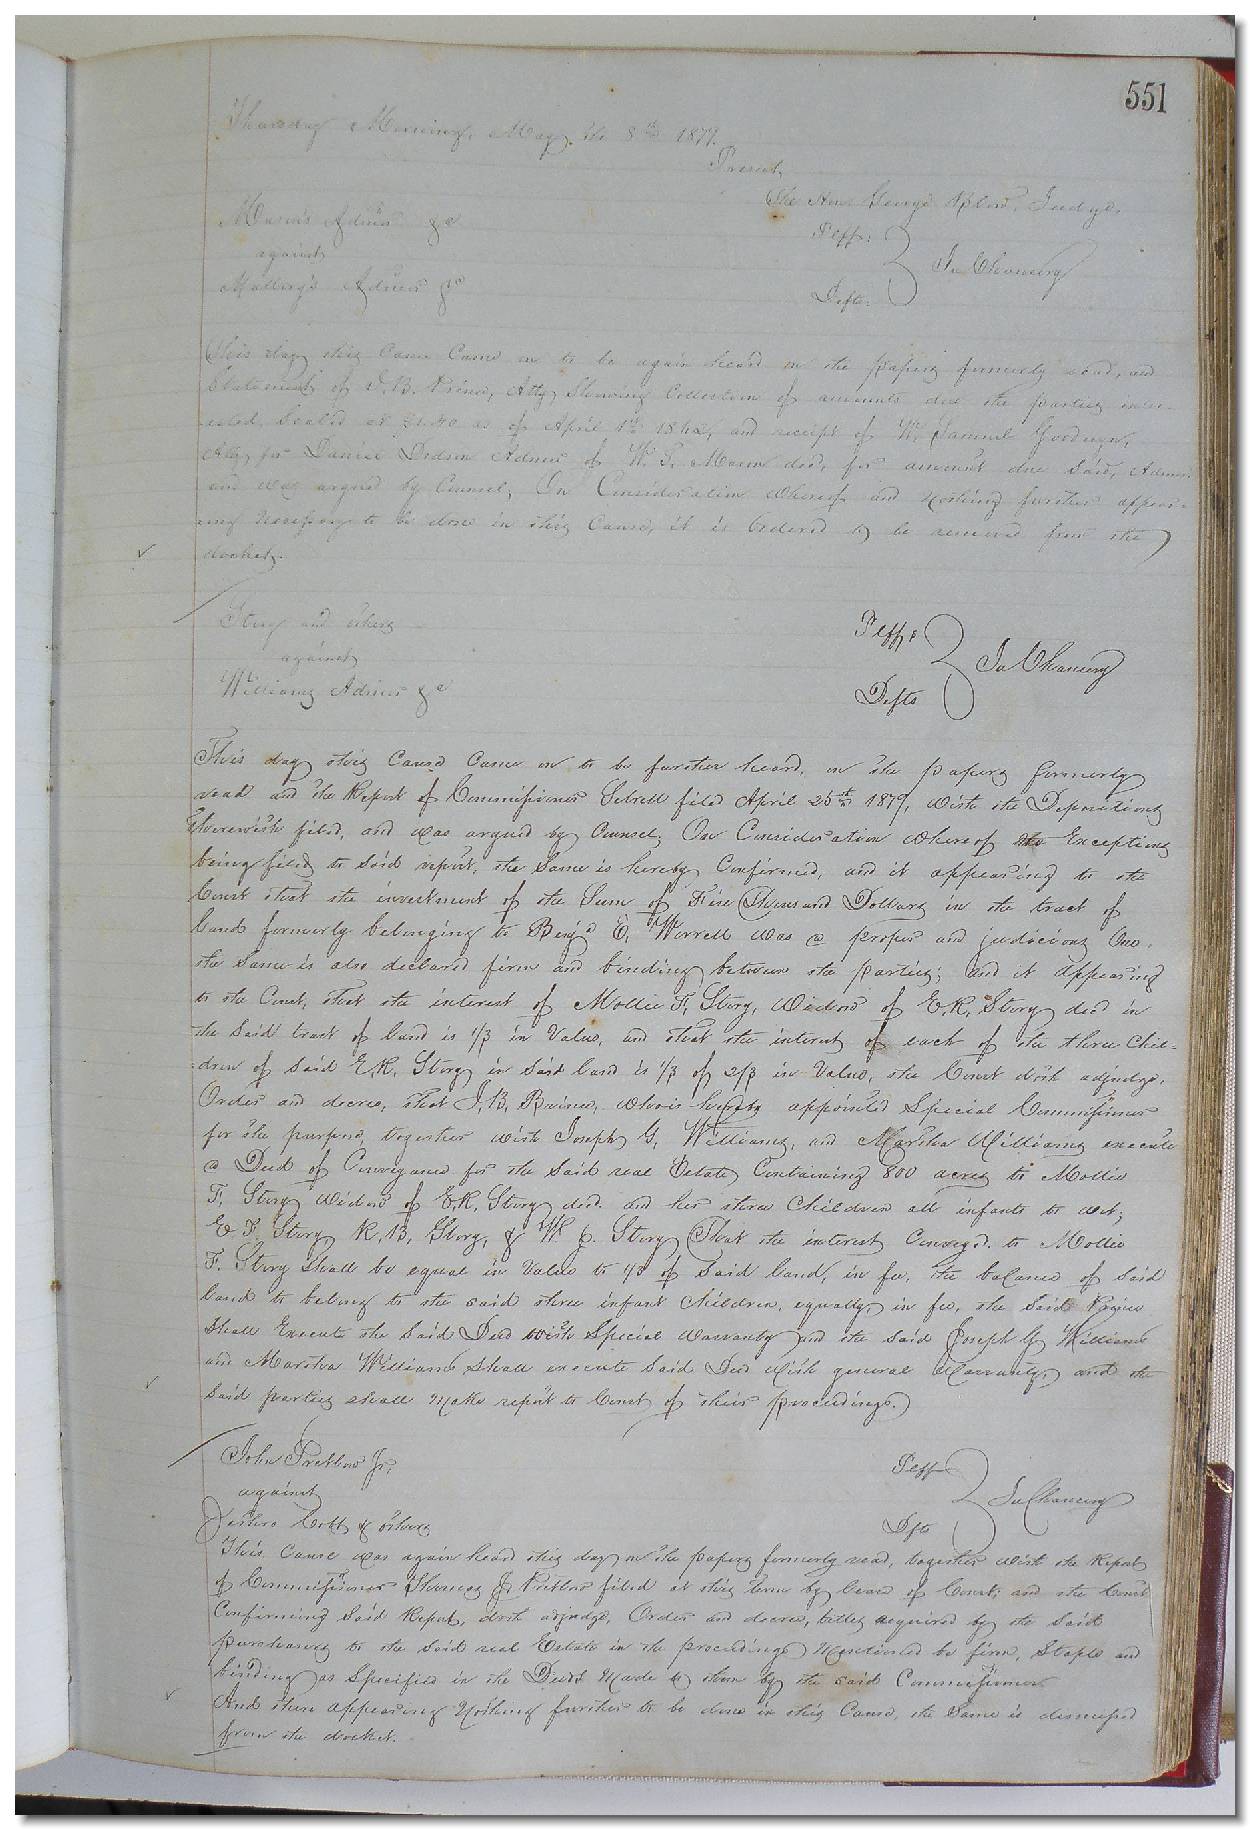 551
Thursday Morning, May the 8th 1879.
Present,
The Hon. George Blow, Judge.
Mason's Admor &c
against
Mallory's Admor &c
Plffs:
Defts.
In Chancery
This day this Cause Came on to be again heard on the papers formerly read, and
Statement of J. B. Prince, Atty, Showing Collection of amounts due the parties inter-
-ested, Scaled at as of April 1st 1862, and receipt of W. Samuel Goodwyn,
Atty for Daniel Dodson Admor of W. T. Mason decd, for amount due Said, Admor
and was argued by Counsel, On Consideration whereof and nothing further appear-
-ing necessary to be done in this Cause, it is Ordered to be removed from the
docket.
Story and others
against
Williams Admor &c
Plffs
Defts
In Chancery
This day this Cause Came on to be further heard, on the papers formerly
read and the Report of Commissioner Sebrell filed April 25th 1879, with the Depositions
therewith filed, and was argued by Counsel; On Consideration whereof no Exceptions
being filed to Said report, the Same is hereby Confirmed, and it appearing to the
Court that the investment of the Sum of Five Thousand Dollars in the tract of
land formerly belonging to Benj'd E. Worrell was a proper and judicious One,
the Same is also declared firm and binding between the parties; and it appearing
to the Court, that the interest of Mollie F. Story, Widow of E. K. Story decd in
the Said tract of land is 1/3 in Value, and that the interest of each of the three Chil-
-dren of Said E. K. Story in Said land is 1/3 of 2/3 in Value, the Court doth adjudge,
Order and decree, that J. B. Prince, who is hereby appointed Special Commissioner
for the purpose, together with Joseph G. Williams, and Martha Williams execute
a Deed of Conveyance for the Said real Estate Containing 800 acres to Mollie
F. Story Widow of E. K. Story decd. and her three Children all infants to wit;
E F. Story, K. B. Story, & W. Story (That the interest Conveyed to Mollie
F. Story Shall be equal in Value to 1/3 of Said land, in fee, the balance of Said
land to belong to the said three infant Children, equally, in fee, the Said Prince
Shall Execute the Said Deed with Special Warranty and the Said Joseph G Williams
and Martha Williams Shall execute Said Deed with general Warranty, and the
Said parties shall make report to Court of their proceedings.)
John Pretlow Jr,
against
Jethro Cobb & others
Plff
Dfts
In Chancery
This Cause was again heard this day on the papers formerly read, together with the Report
of Commissioner Thomas J. Pretlow filed at this term by leave of Court; and the Court
Confirming Said Report, doth adjudge, Order and decree, titles acquired by the Said
purchasers to the Said real Estate in the proceedings Mentioned be firm, Stable and
binding as Specified in the Deeds Made to them by the said Commissioner
And there appearing Nothing further to be done in this Cause, the Same is dismissed
from the docket.